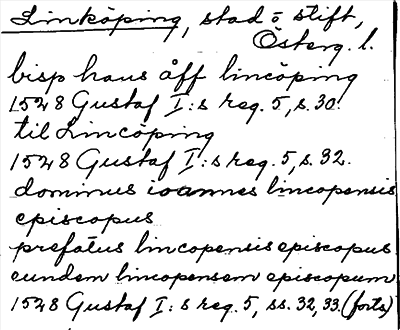 Linköping, stad o stift,
Österg. l.
bisp hans åff lincöping
1528 Gustaf I:s reg. 5, s. 30.
til Lincöping
1528 Gustaf I:s reg. 5, s. 32.
dominus ioannes lincopensis
episcopus
prefatus lincopensis episcopus
eundem lincopensem episcopum
1528 Gustaf I:s reg. 5, ss. 32, 33. (forts)